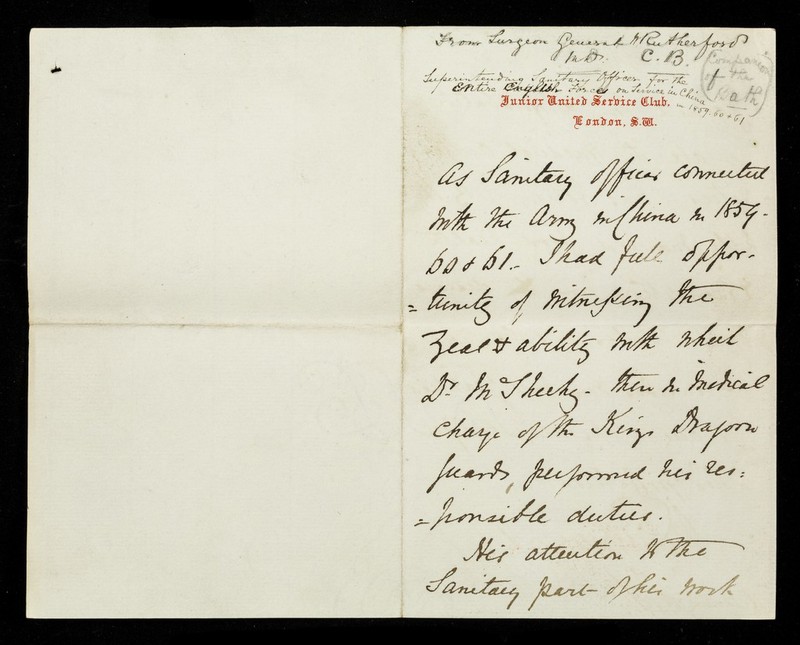 From Surgeon General W Rutherford
M.D. C.B. (Companion of the Bath)
Superintending Sanitary Officer for the
Entire English Force on Service in China in 1859. 60 + 61
Junior United Service Club.
London, S.W.
As Sanitary officer connected
with the Army in China in 1859-
60 & 61- I had full oppor-
=tunity of witnessing the
zeal & ability with which
Dr McSheehy- then in medical
charge of the Kings Dragoon
Guards, performed his res:
=ponsible duties.
His attention to the
Sanitary part of his work